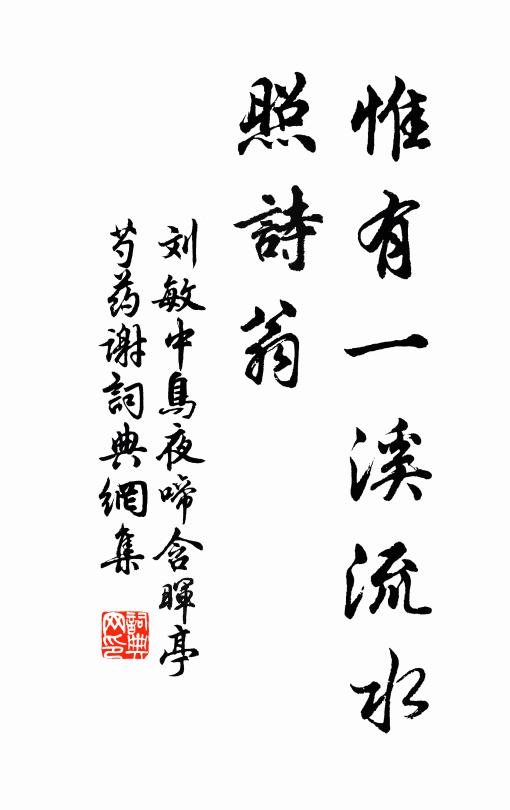 惟有一溪流水
照詩翁
刘敏中鳥夜啼含暉亭
芍药谢詞典網集
詞典
网印